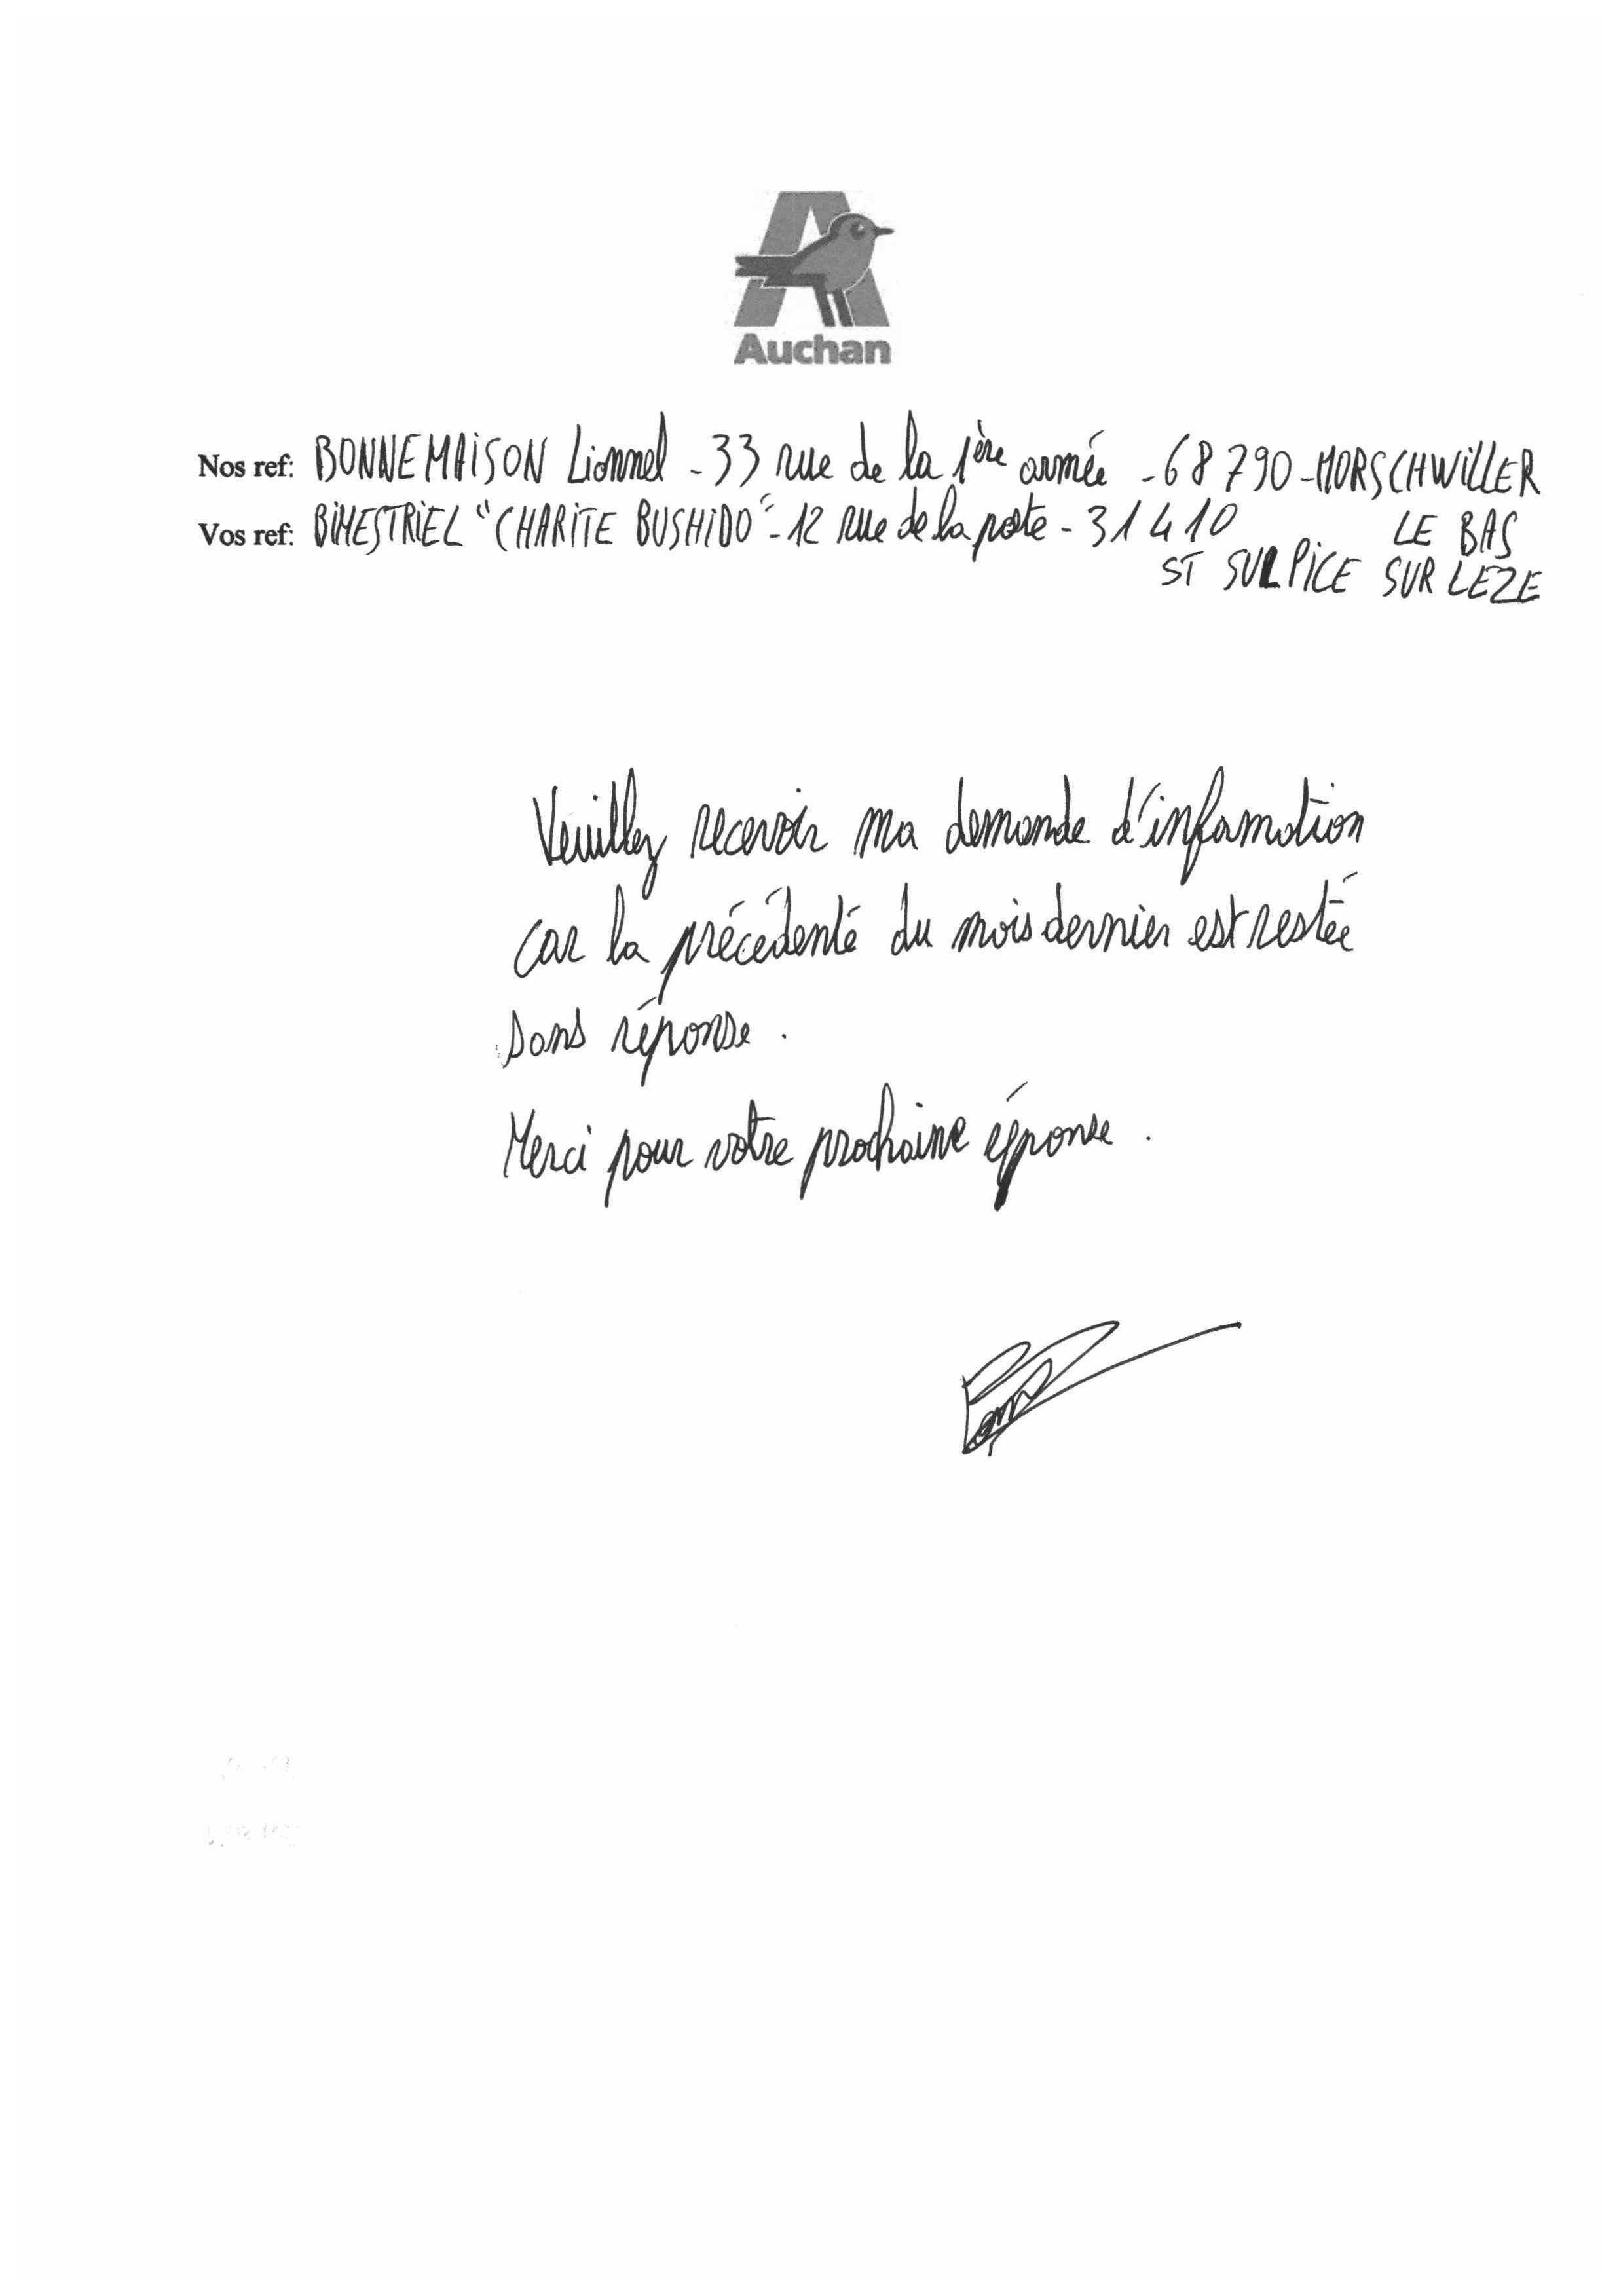 Auchan
Nos ref: BONNEMAISON Lionnel - 33 rue de la 1ère armée - 68790 - MORSCHWILLER
LE BAS
Vos ref: BIMESTRIEL "CHARITE BUSHIDO" - 12 rue de la poste - 31410
ST SULPICE SUR LEZE
Veuillez recevoir ma demande d'infamation
car la précédenté du mois dernier est restée
sans réponse.
Merci pour votre prochaine éponse.